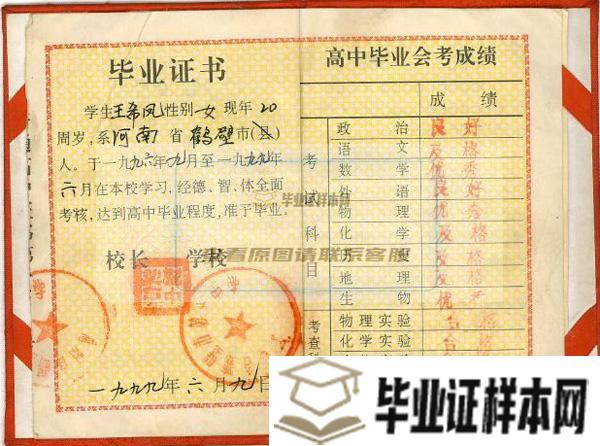 毕业证书
学生王希凤性别女现年20
周岁,系河南省鹤壁市(县)
人。于一九九六年九月至一九九九年
六月在本校学习,经德、智、体全面
考核,达到高中毕业程度,准予毕业。
校长 学校
一九九九年六月九日
高中毕业会考成绩
成绩
考试科目
政治 良好
语文 及格
数学 优秀
外语 良好
物理 优秀
化学 及格
历史 及格
地理 及格
生物 优
考查科
物理实验 合格
化学实验 合格
毕业证样本网
查看原图请联系客服
毕业证样本网